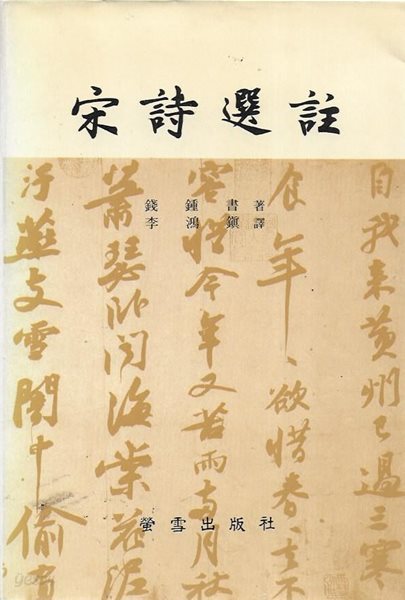 宋詩選註
錢鍾書 著
李鴻鎭 譯
自我来黄州已過三寒
食年、欲惜春去不
容惜今年又苦雨兩月秋
蕭瑟卧闻海棠花泥
汙燕支雪闇中偷
螢雪出版社